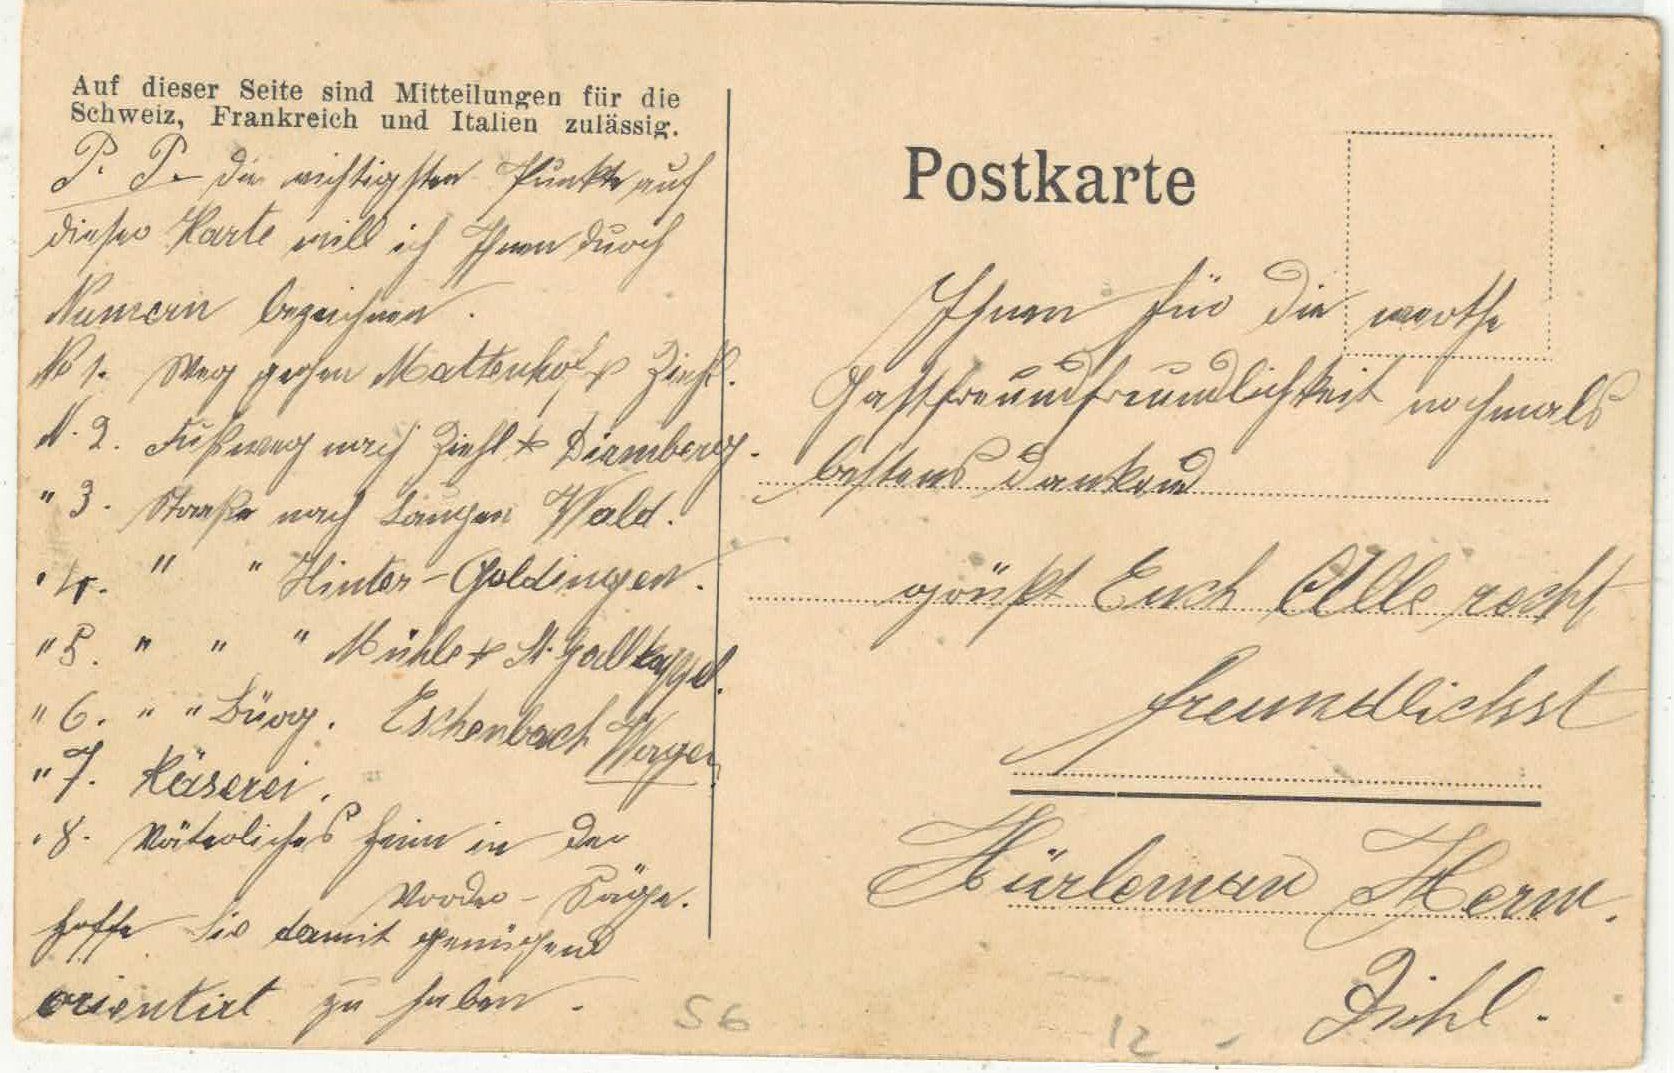 Auf dieser Seite sind Mitteilungen für die
Schweiz, Frankreich und Italien zulässig.
P. P. Die wichtigsten Punkte auf
dieser Karte will ich Ihnen durch
Numern bezeichnen.
N° 1. Weg gegen Mattenhof & Ziehl.
N. 2. Fußweg nach Ziehl & Diemberg.
" 3. Straße nach Laugen Wald.
" 4. " " Hinter-Goldingen.
" 5. " " " Mühle & St. Gallkappel.
" 6. " " Bürg. Eschenbach Wagen
" 7. Käserei.
" 8. Väterliches Heim in der
Vorder-Säge.
Hoffe Sie damit genügend
orientirt zu haben.
Postkarte
Ihnen für die werthe
Gastfreundfreundlichkeit nochmals
bestens dankend
grüßt Euch Alle recht
freundlichst
Hürleman Herm.
Ziehl.
56
12 -